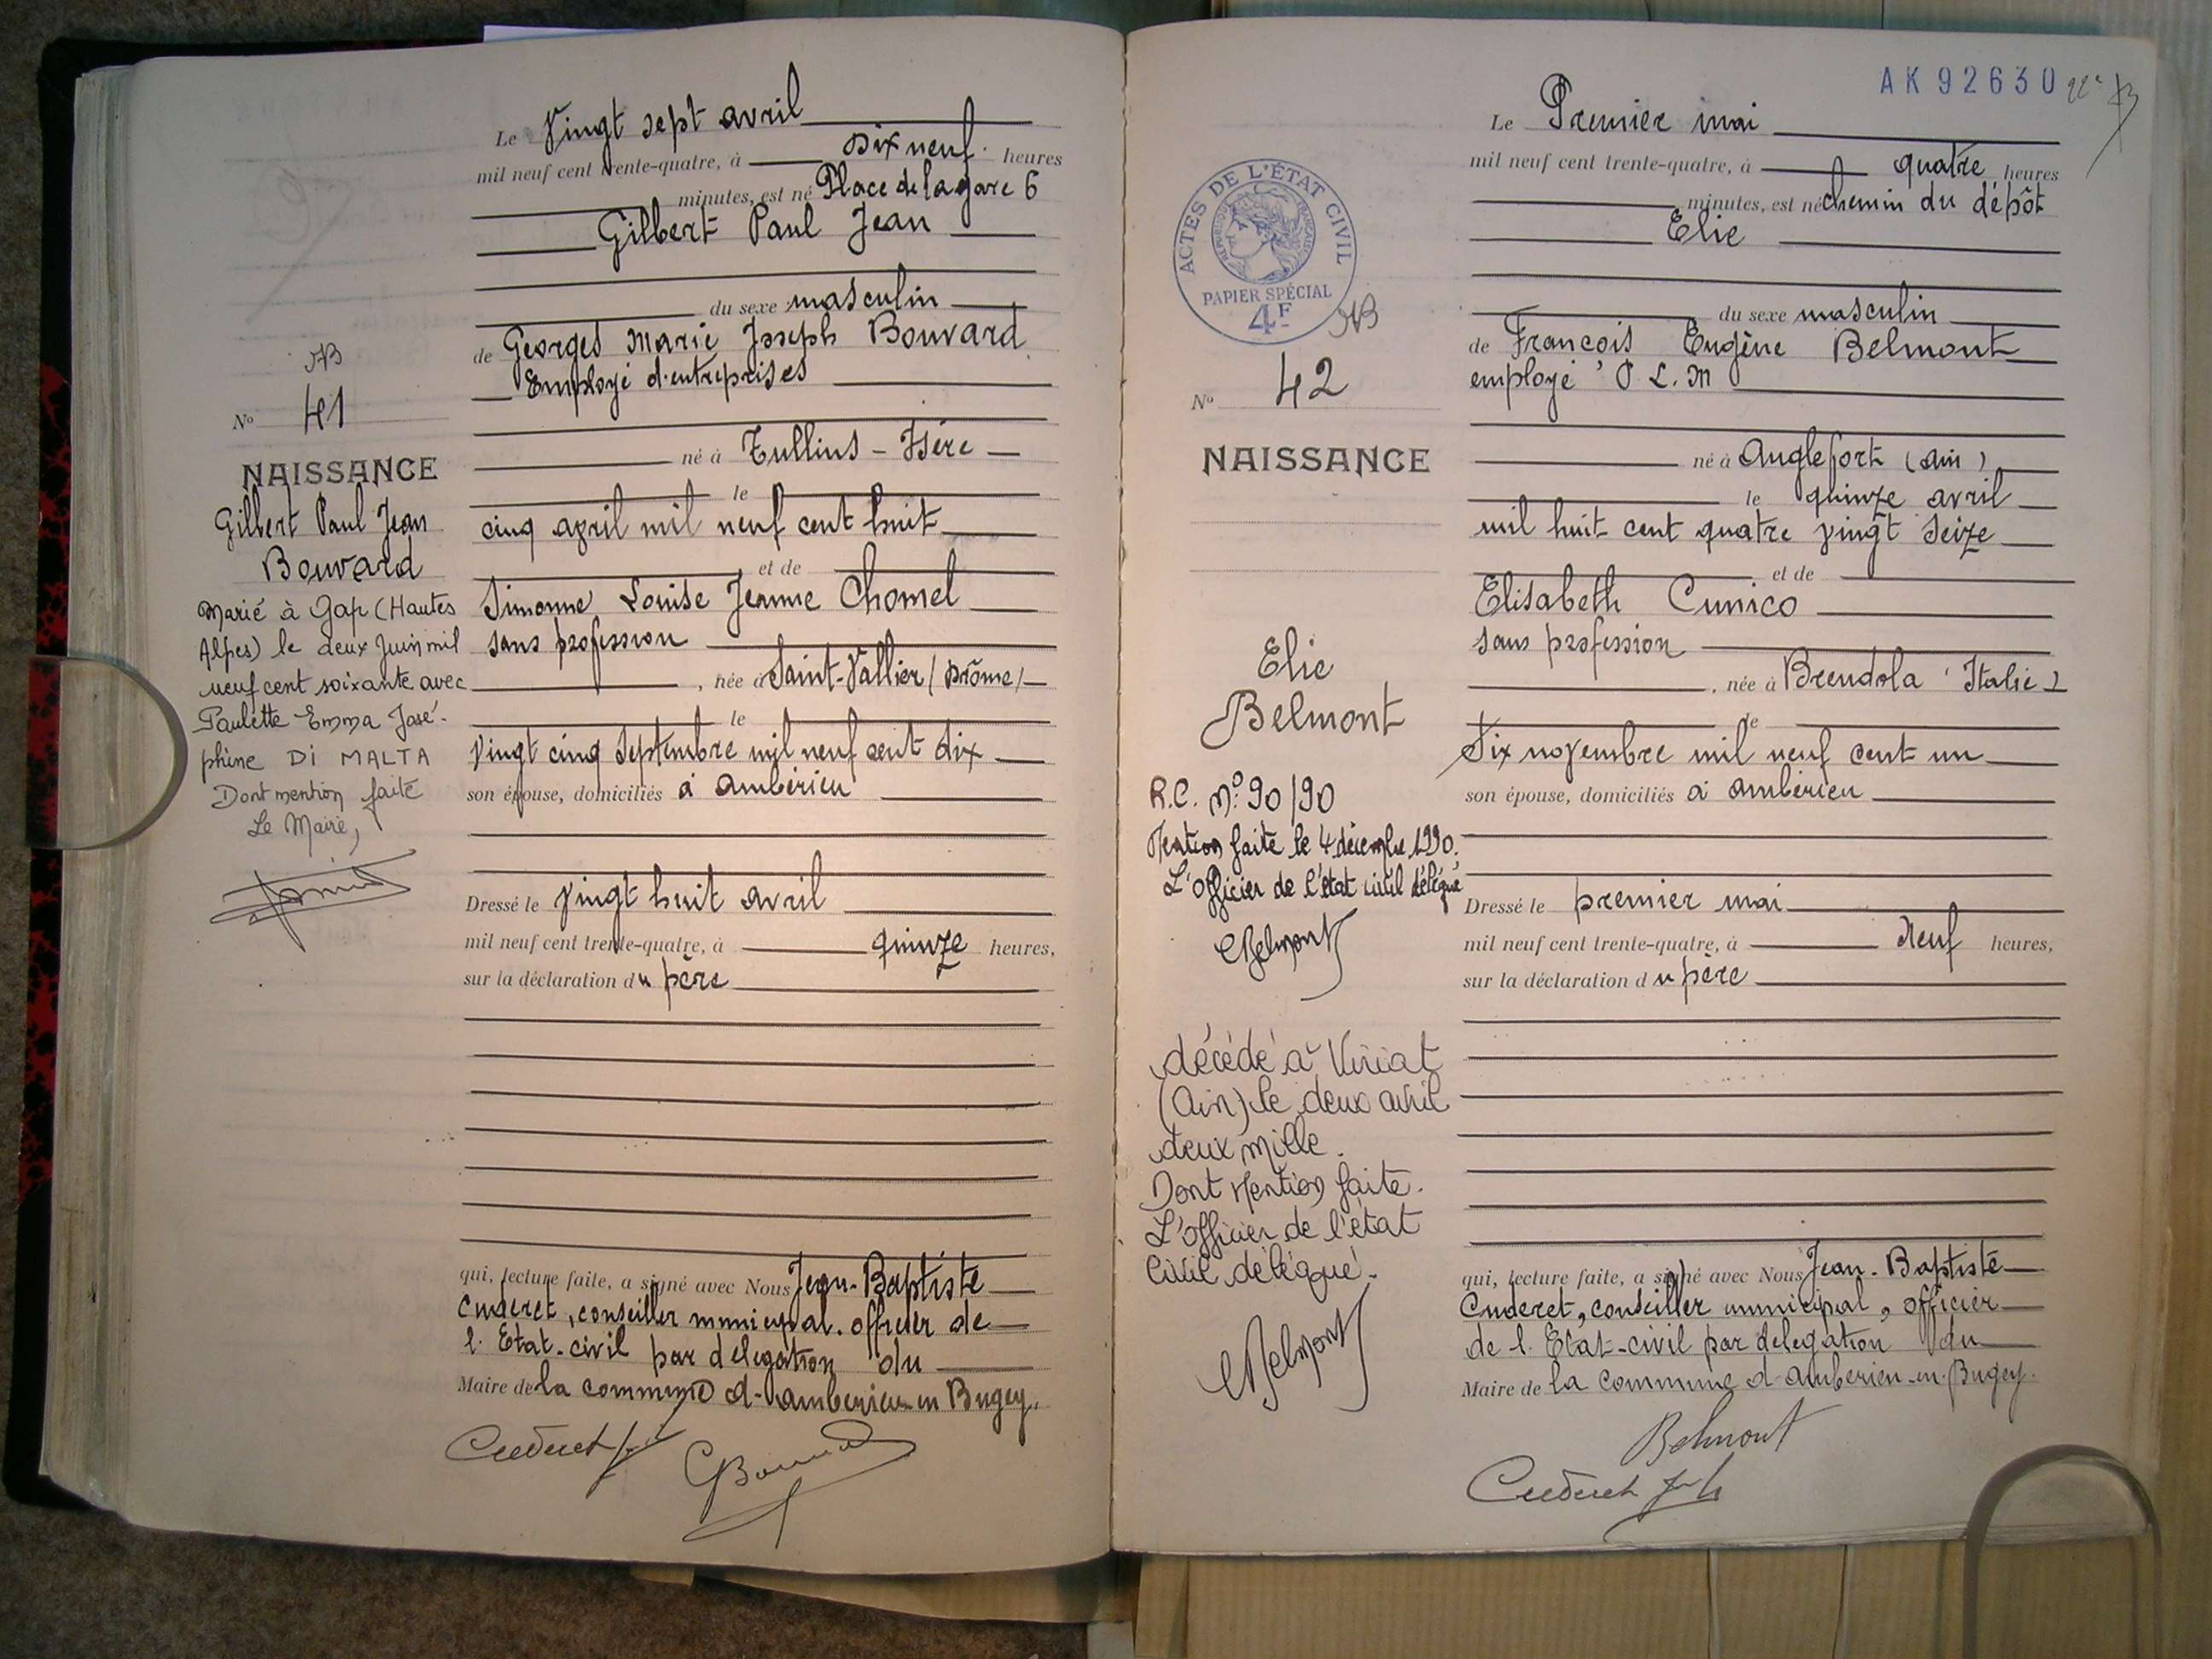 Le Vingt sept avril
mil neuf cent trente-quatre, à dix neuf heures
minutes, est né Place de la gare 6
Gilbert Paul Jean
du sexe masculin
de Georges Marie Joseph Bouvard
Employé d'entreprises
né à Tullins - Isère
le
cinq avril mil neuf cent huit
et de
Simonne Louise Jeanne Chomel
sans profession
, née à Saint-Vallier (Drôme)
le
vingt cinq Septembre mil neuf cent dix
son épouse, domiciliés à Ambérieu
Dressé le vingt huit avril
mil neuf cent trente-quatre, à quinze heures,
sur la déclaration du père
qui, lecture faite, a signé avec Nous Jean-Baptiste
Cuderet, conseiller municipal, officier de
l'Etat-civil par délégation du
Maire de la commune d'Ambérieu en Bugey.
Cuderet
GBouvard
N° 41
NAISSANCE
Gilbert Paul Jean
Bouvard
Marié à Gap (Hautes
Alpes) le deux Juin mil
neuf cent soixante avec
Paulette Emma José-
phine DI MALTA
Dont mention faite
Le Maire,
AK 92630
Le Premier mai
mil neuf cent trente-quatre, à quatre heures
minutes, est né chemin du dépôt
Elie
du sexe masculin
de François Eugène Belmont
employé P. L. M
né à Anglefort (Ain)
le quinze avril
mil huit cent quatre vingt seize
et de
Elisabeth Cunico
sans profession
, née à Brendola (Italie)
le
Six novembre mil neuf cent un
son épouse, domiciliés à Ambérieu
Dressé le premier mai
mil neuf cent trente-quatre, à neuf heures,
sur la déclaration du père
qui, lecture faite, a signé avec Nous Jean-Baptiste
Cuderet, conseiller municipal, officier
de l'Etat-civil par délégation du
Maire de la commune d'Ambérieu-en-Bugey.
Belmont
Cuderet
ACTES DE L'ÉTAT CIVIL
RÉPUBLIQUE FRANÇAISE
PAPIER SPÉCIAL
4F
N° 42
NAISSANCE
Elie
Belmont
R.C. N° 90/90
Mention faite le 4 décembre 1990.
L'officier de l'état civil délégué
Belmont
décédé à Viriat
(Ain) le deux avril
deux mille.
Dont Mention faite.
L'officier de l'état
Civil délégué.
Belmont